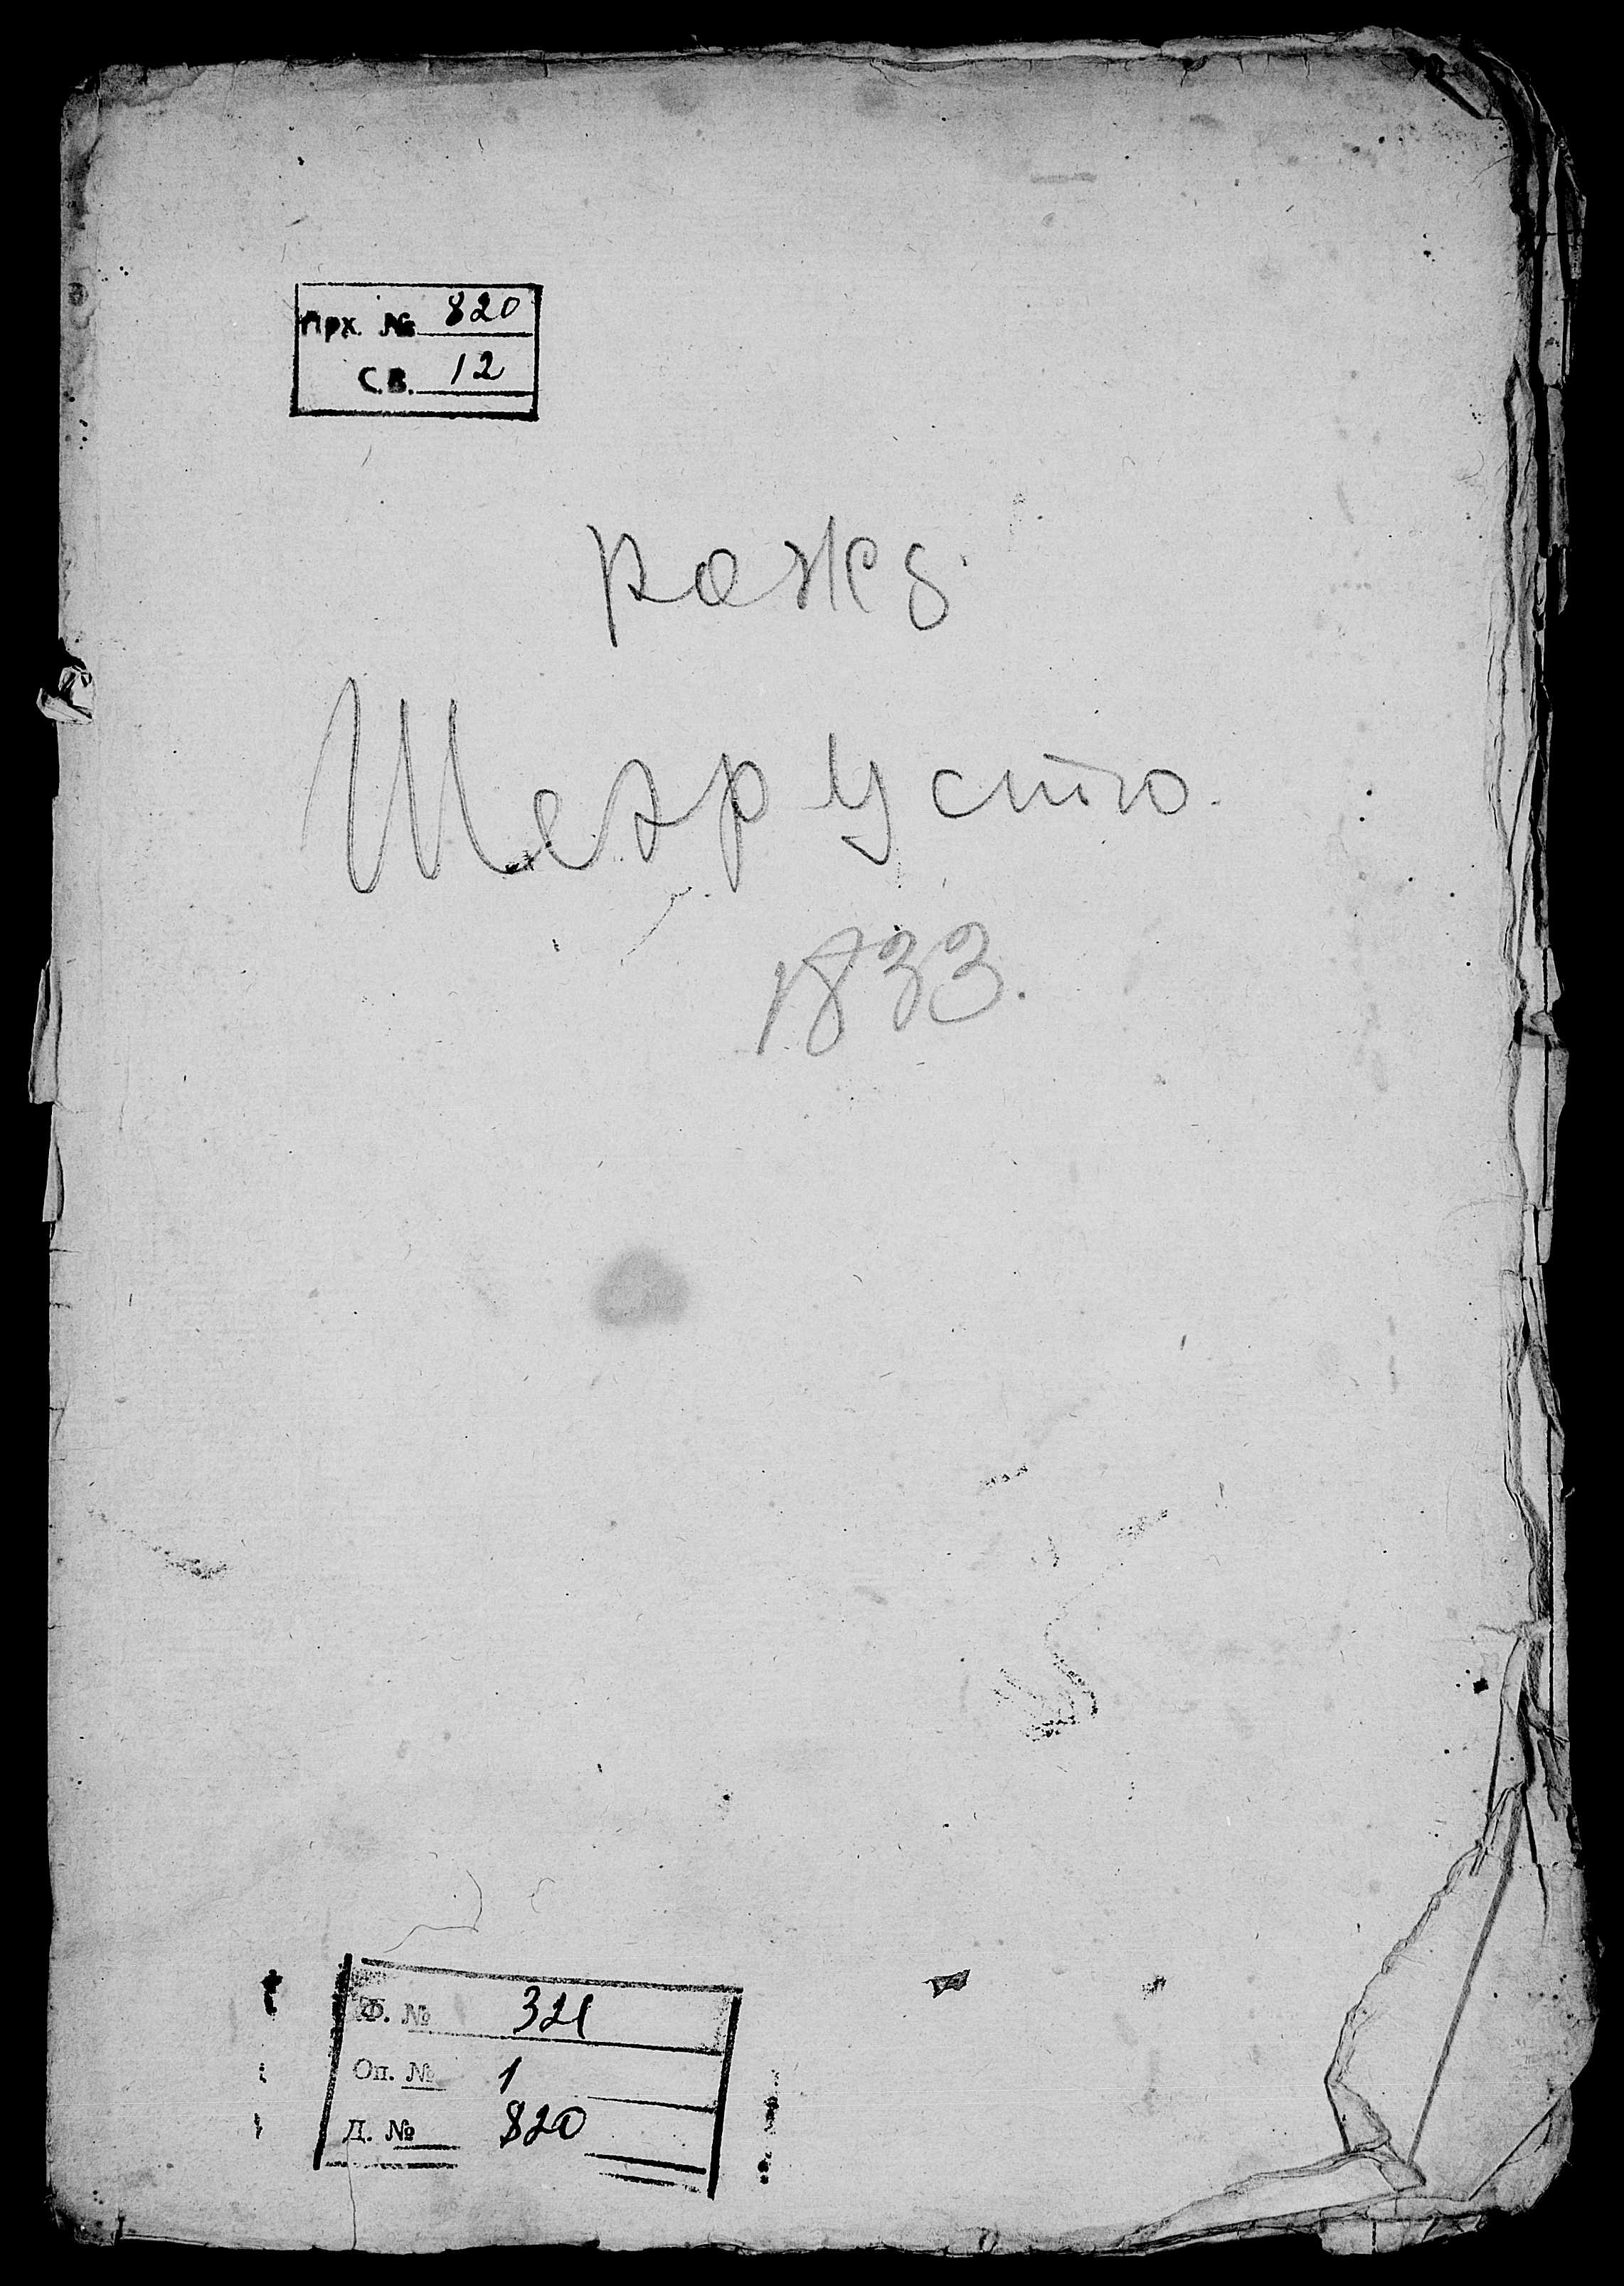 Арх. № 820
С.В. 12
рожд.
Шехр Устю.
1833.
Ф. № 321
Оп. № 1
Д. № 820